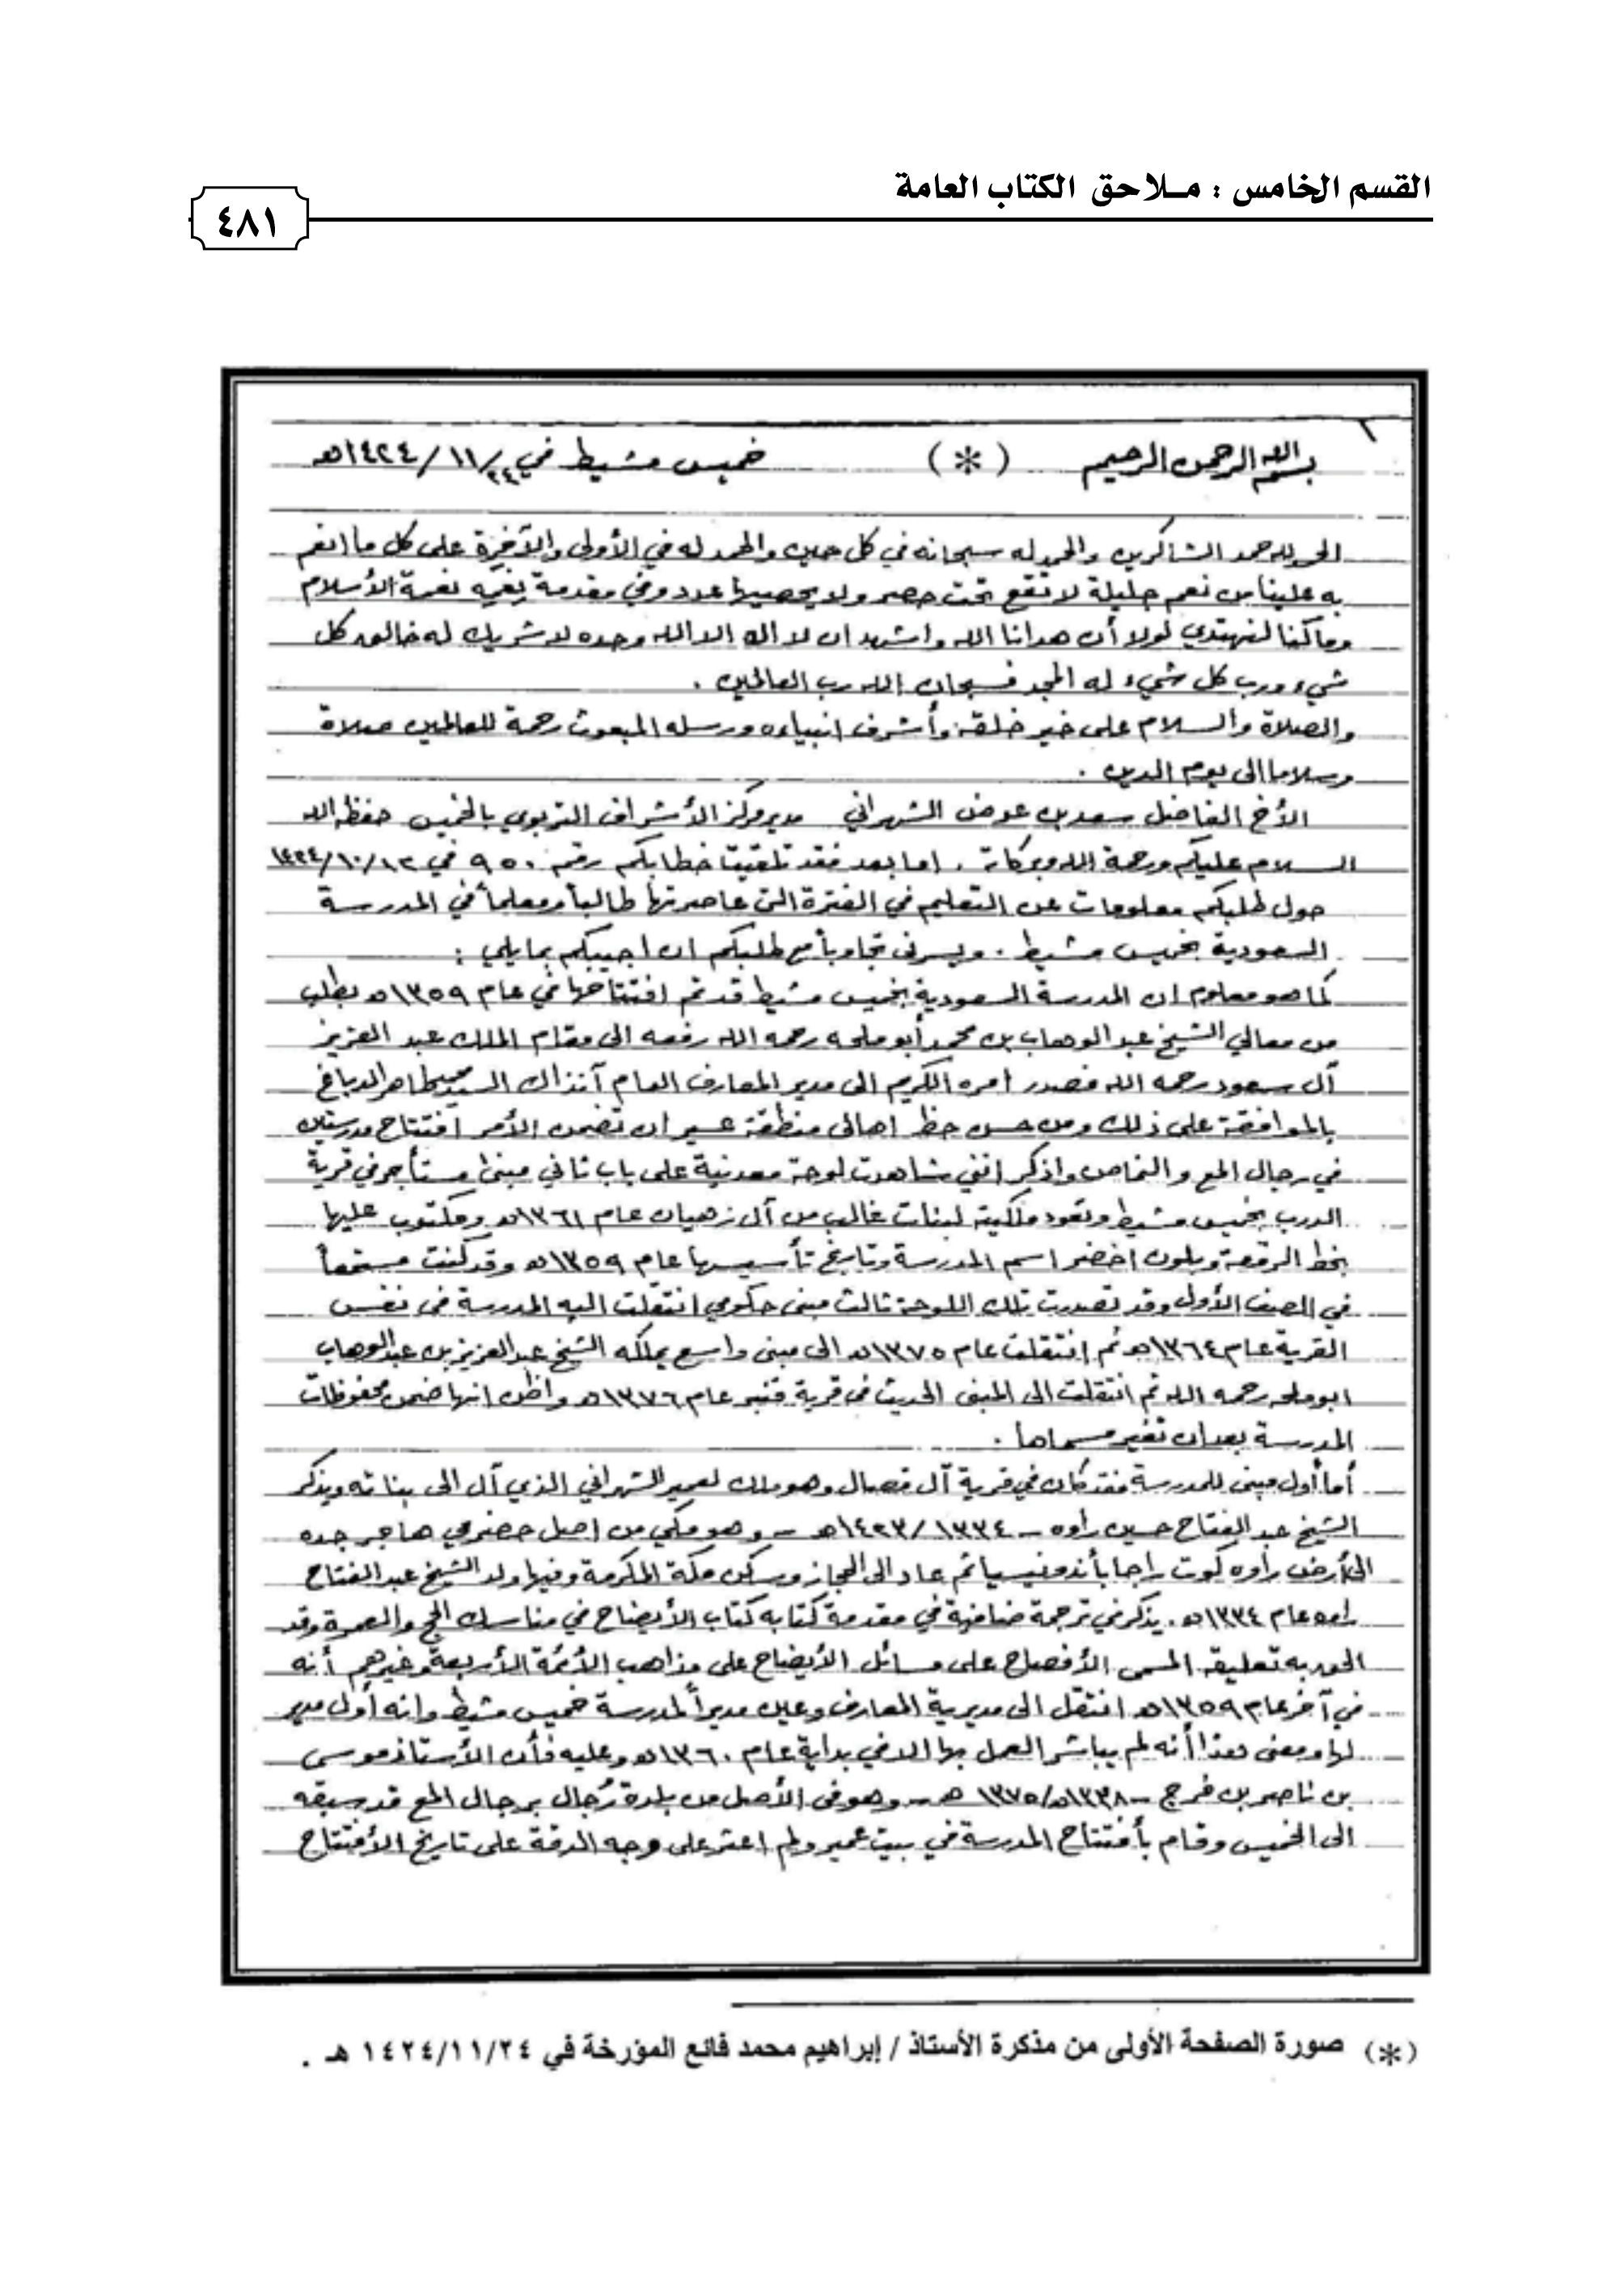 القسم الخامس : مـلاحق الكتاب العامة
٤٨١
بسم الله الرحمن الرحيم (*) خميس مشيط في ٢٤/١١/١٤٢٤هـ
الحمد لله حمد الشاكرين والحمد له سبحانه في كل حين والحمد له في الأولى والآخرة على كل ما انعم
به علينا من نعم جليلة لا تقع تحت حصر ولا يحصيها عدد وفي مقدمة نعمه نعمة الأسلام
وما كنا لنهتدي لولا أن هدانا الله واشهد ان لا اله الا الله وحده لا شريك له خالق كل
شيء ورب كل شيء له المجد فسبحان الله رب العالمين .
والصلاة والسلام على خير خلقه وأشرف انبياءه ورسله المبعوث رحمة للعالمين صلاة
وسلاما الى يوم الدين .
الأخ الفاضل سعد بن عوض الشهراني مدير مركز الأشراف التربوي بالخميس حفظه الله
السلام عليكم ورحمة الله وبركاته . اما بعد فقد تلقيت خطابكم رقم ٩٥٠ في ١٤٢٤/١٠/١٢
حول طلبكم معلومات عن التعليم في الفترة التي عاصرتها طالباً ومعلماً في المدرسة
السعودية بخميس مشيط . ويسرني تجاوباً مع طلبكم ان اجيبكم بما يلي :
كما هو معلوم ان المدرسة السعودية بخميس مشيط قد تم افتتاحها في عام ١٣٥٩هـ بطلب
من معالي الشيخ عبد الوهاب بن محمد أبو ملحه رحمه الله رفعه الى مقام الملك عبد العزيز
آل سعود رحمه الله فصدر امره الكريم الى مدير المعارف العام آنذاك السيد محمد طاهر الدباغ
بالموافقة على ذلك ومن حسن حظ اهالي منطقة عسير ان تضمن الأمر افتتاح مدرستين
في رجال المع والنماص واذكر انني شاهدت لوحة معدنية على باب ثاني مبنى مستأجر في قرية
الدرب بخميس مشيط وتعود ملكيته لبنات غالب من آل زهيان عام ١٣٦١هـ ومكتوب عليها
بخط الرقعة وبلون اخضر اسم المدرسة وتاريخ تأسيسها عام ١٣٥٩هـ وقد كنت مستمعاً
في الصف الأول وقد تصدرت تلك اللوحة ثالث مبنى حكومي انتقلت اليه المدرسة في نفس
القرية عام ١٣٦٤هـ ثم انتقلت عام ١٣٧٥هـ الى مبنى واسع يملكه الشيخ عبد العزيز بن عبد الوهاب
ابو ملحه رحمه الله ثم انتقلت الى المبنى الحديث في قرية قنبر عام ١٣٧٦هـ واظن انها ضمن محفوظات
المدرسة بعد ان تغير مسماها .
أما أول مبنى للمدرسة فقد كان في قرية آل قصال وهو ملك لعمير الشهراني الذي آل الى بناته ويذكر
الشيخ عبد الفتاح حسين راوه – ١٣٣٤/١٤٢٣هـ – وهو مكي من اصل حضرمي هاجر جده
الى أرض راوه كوت راجا بأندونيسيا ثم عاد الى الحجاز وسكن مكة المكرمة وفيها ولد الشيخ عبد الفتاح
راوه عام ١٣٣٤هـ . يذكر في ترجمة ضافية في مقدمة كتابه كتاب الأيضاح في مناسك الحج والعمرة وقد
الحق به تعليقه المسمى الأفصاح على مسائل الأيضاح على مذاهب الأئمة الأربعة وغيرهم أنه
في آخر عام ١٣٥٩هـ انتقل الى مديرية المعارف وعين مديراً لمدرسة خميس مشيط وانه أول مدير
لها ومعنى هذا أنه لم يباشر العمل بها الا في بداية عام ١٣٦٠هـ وعليه فأن الأستاذ موسى
بن ناصر بن فرج – ١٣٣٨هـ/١٣٧٥ هـ – وهو في الأصل من بلدة رُجال برجال المع قد سبقه
الى الخميس وقام بأفتتاح المدرسة في بيت عمير ولم اعثر على وجه الدقة على تاريخ الأفتتاح
(*) صورة الصفحة الأولى من مذكرة الأستاذ / إبراهيم محمد فائع المؤرخة في ١٤٢٤/١١/٢٤ هـ .